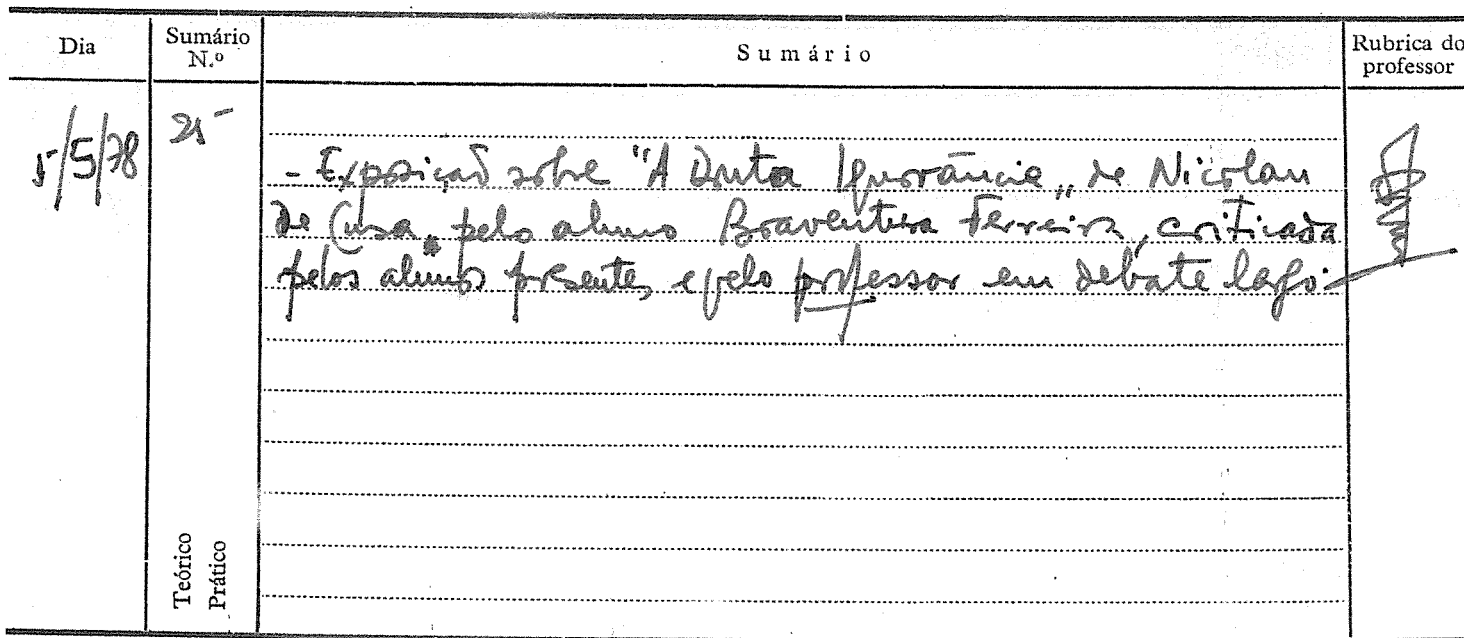 Dia
Sumário N.º
Sumário
Rubrica do professor
5/5/78
25
- Exposição sobre "A Douta Ignorância" de Nicolau
de Cusa, pelo aluno Boaventura Ferreira, criticada
pelos alunos presentes e pelo professor em debate
Teórico
Prático